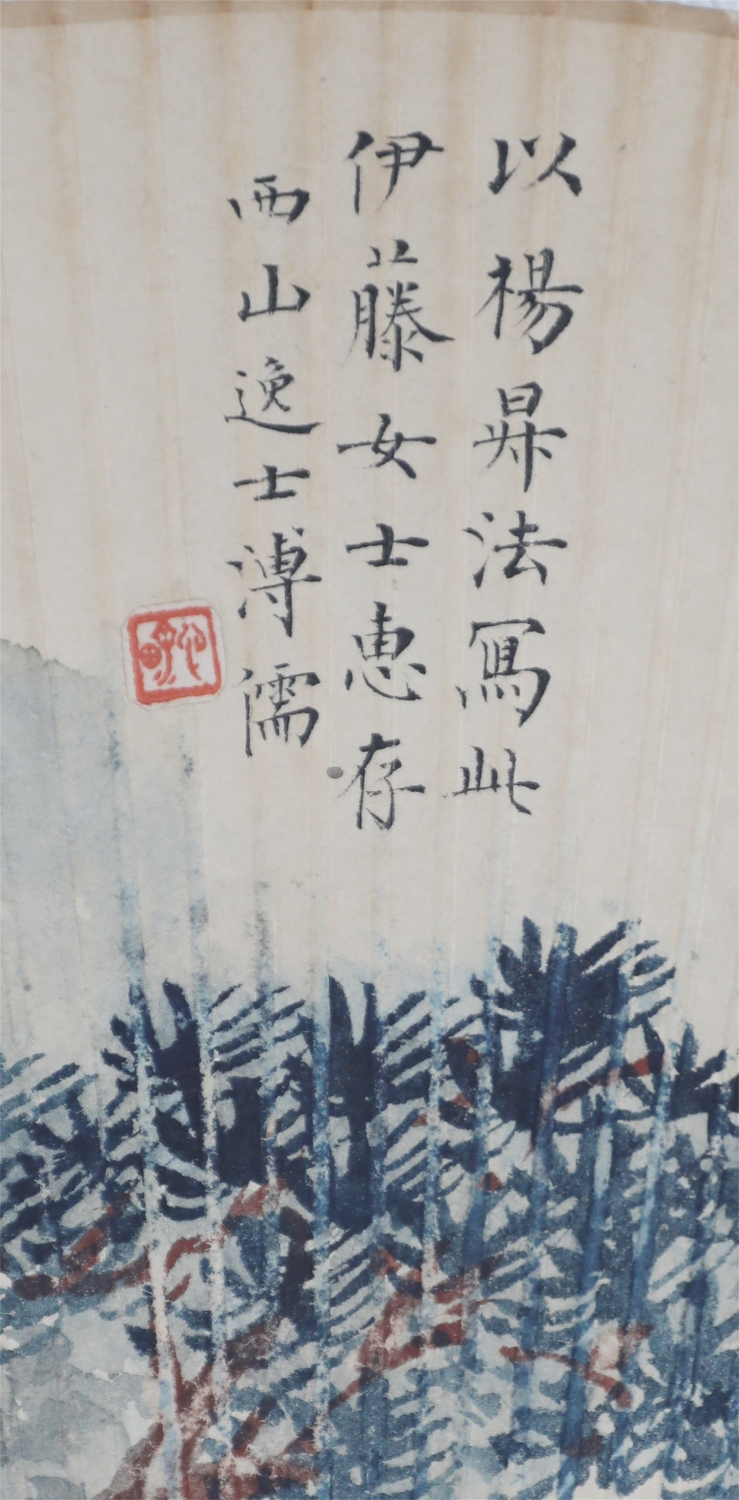 以楊昇法寫此
伊藤女士惠存
西山逸士溥儒